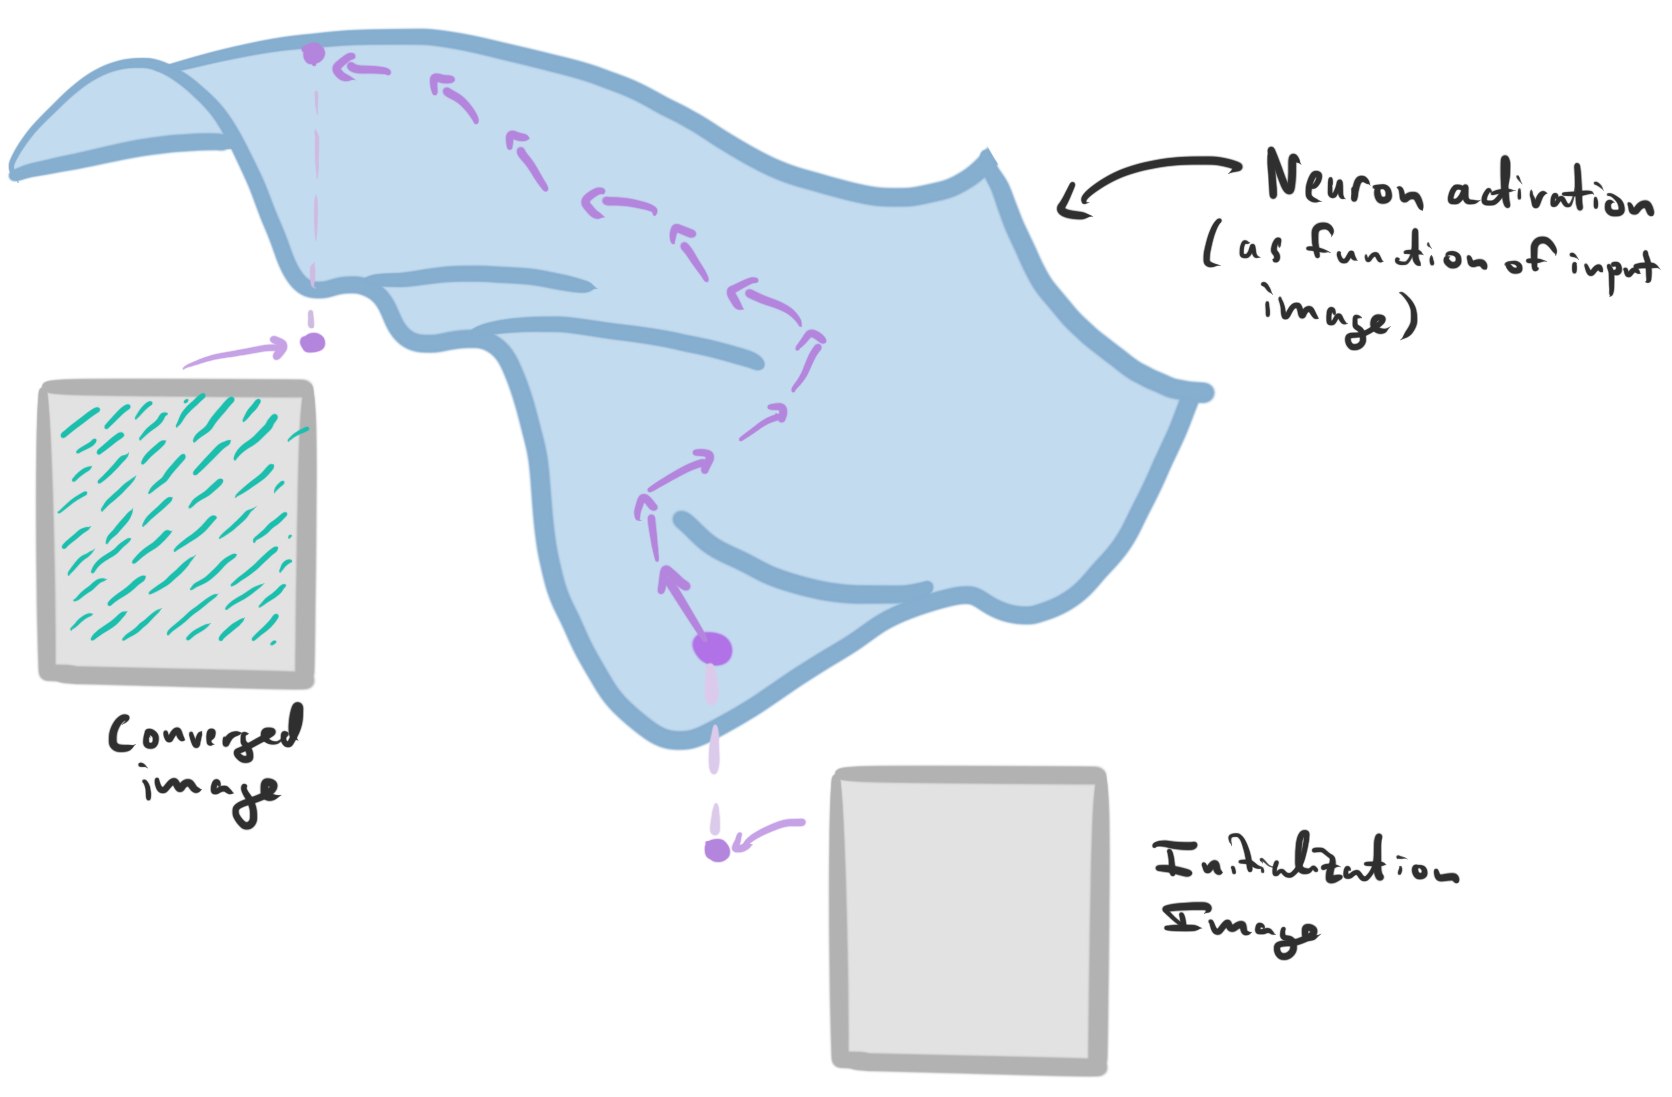 Neuron activation
(as function of input
image)
Converged
image
Initialization
Image